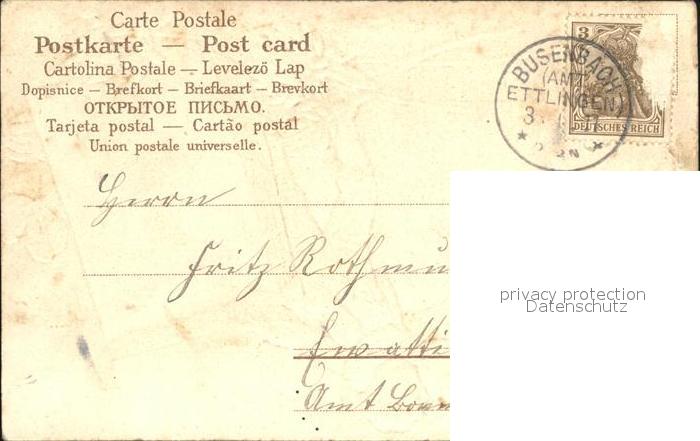 Carte Postale
Postkarte — Post card
Cartolina Postale — Levelező Lap
Dopisnice — Brefkort — Briefkaart — Brevkort
ОТКРЫТОЕ ПИСЬМО.
Tarjeta postal — Cartão postal
Union postale universelle.
3
BUSENBACH
(AMT
ETTLINGEN)
3
DEUTSCHES REICH
Herrn
Fritz Rothmu
Amt
privacy protection
Datenschutz